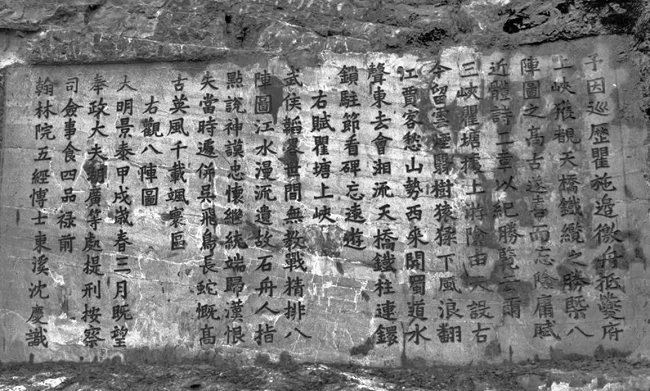 予因巡歷瞿施邉徼舟抵夔府
上峽獲覩天橋鐵纜之勝槩八
陣圖之髙古遂喜而忘險庸賦
近體詩二章以紀勝覧云爾
三峽瞿塘據上游險由天設古
今留雲烟翳樹猿猱下風浪翻
江賈客愁山勢西來開蜀道水
聲東去會湘流天橋鐵柱連鐶
鎖駐節看碑忘遠遊
右賦瞿塘上峽
武侯韜畧世間無教戰精排八
陣圖江水漫流遺故石舟人指
點說神謨忠懷繼統端歸漢恨
失當時遽併吳飛鳥長蛇慨髙
古英風千載颯寰區
右觀八陣圖
大明景泰甲戌歲春三月旣望
奉政大夫湖廣等處提刑按察
司僉事食四品禄前
翰林院五經博士東溪沈慶識